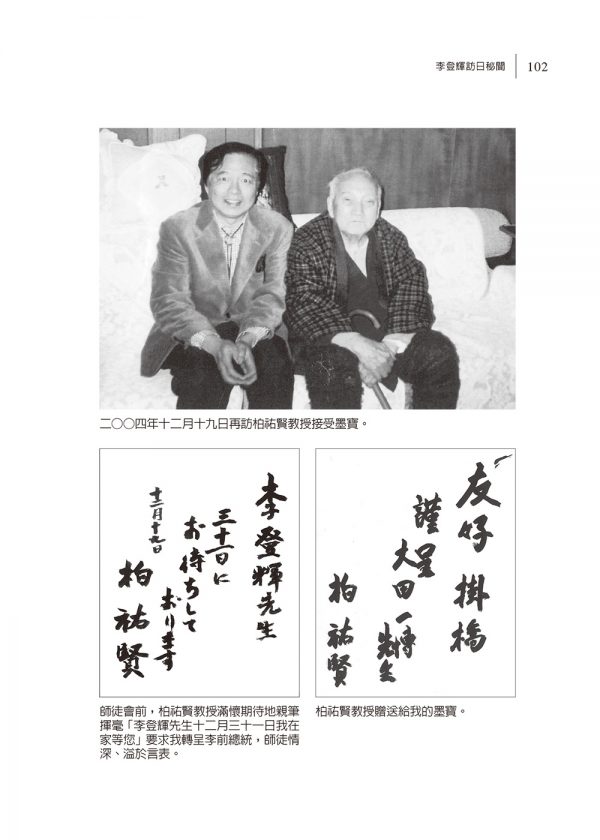 李登輝訪日秘聞
102
二〇〇四年十二月十九日再訪柏祐賢教授接受墨寶。
李登輝先生
三十一日に
お待ちして
おります
十二月十九日
柏祐賢
友好掛橋
謹呈
大田一博先生
柏祐賢
師徒會前，柏祐賢教授滿懷期待地親筆
揮毫「李登輝先生十二月三十一日我在
家等您」要求我轉呈李前總統，師徒情
深、溢於言表。
柏祐賢教授贈送給我的墨寶。